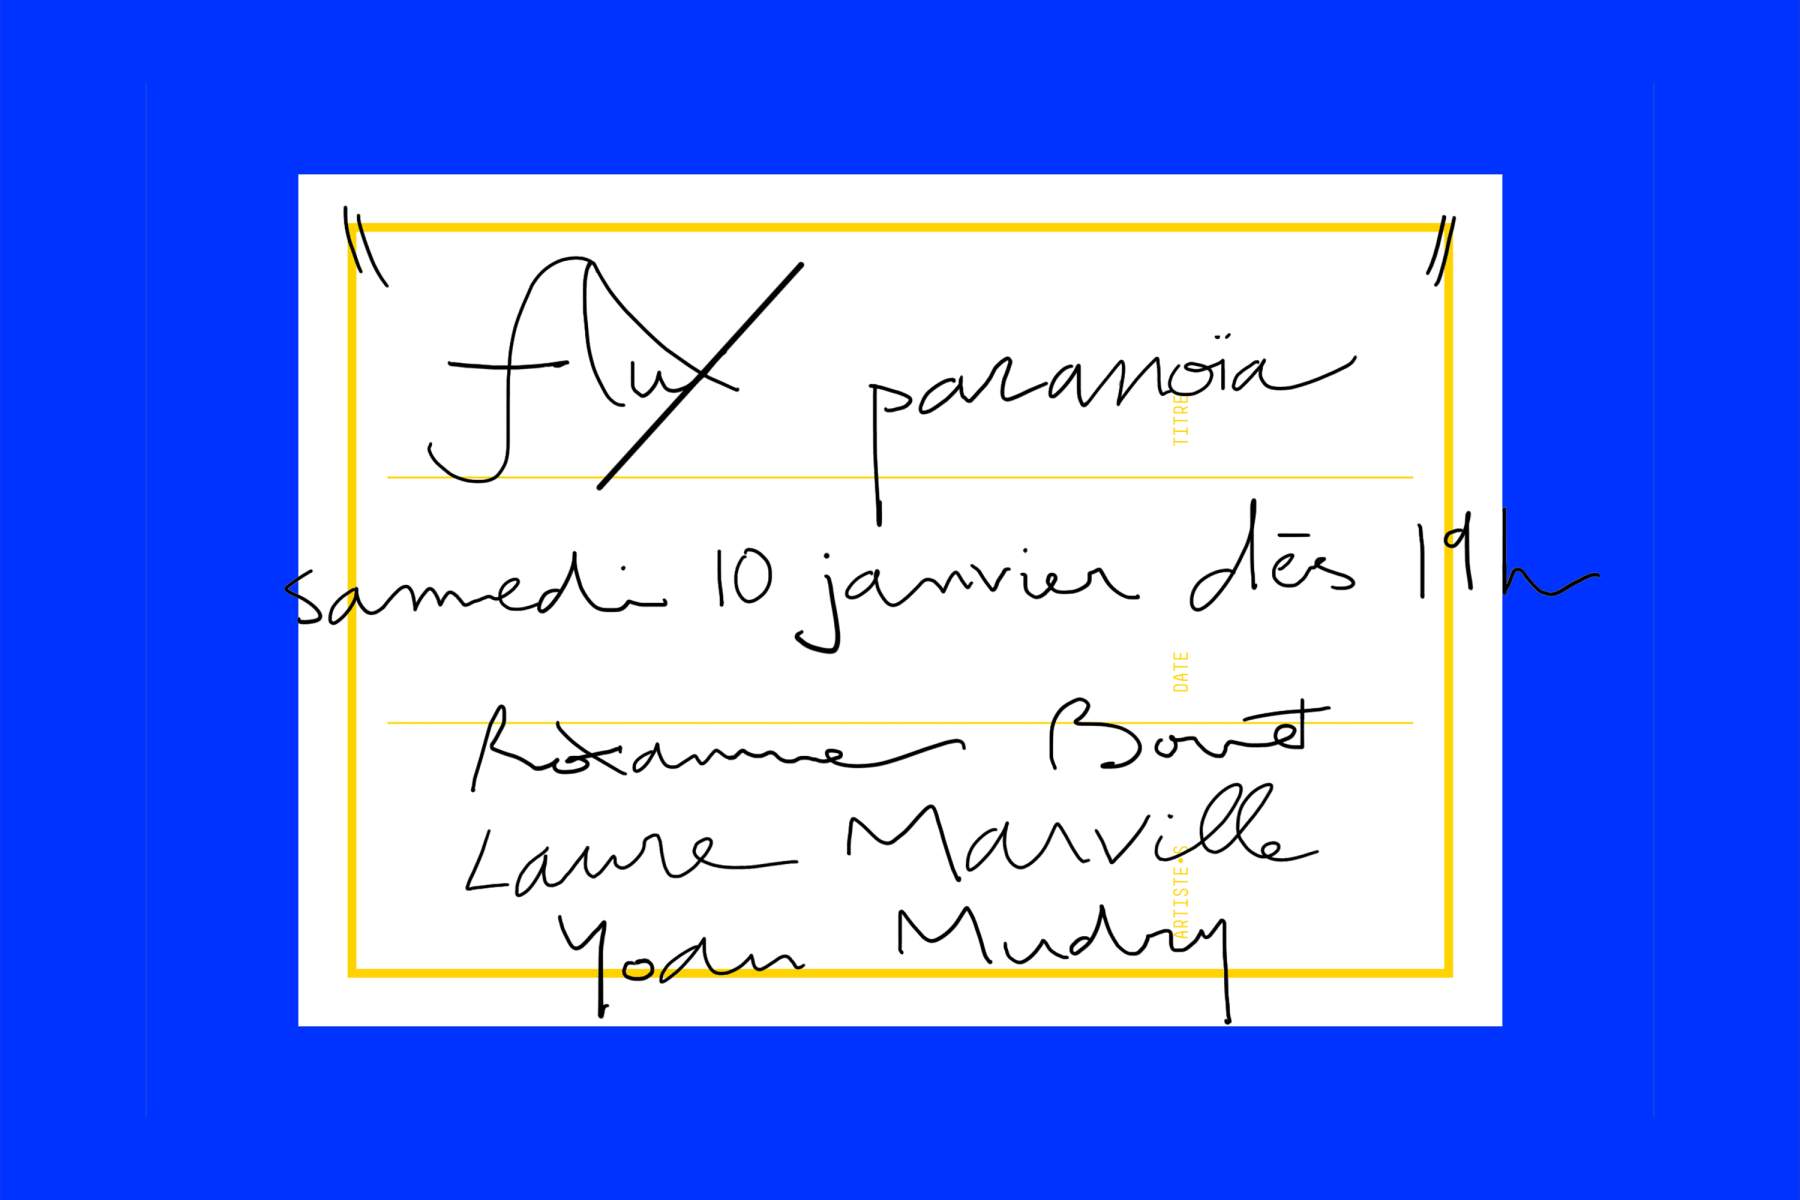 "flux paranoïa"
TITRE
samedi 10 janvier dès 19h
DATE
Roxanne Bovet
Laure Marville
Yoan Mudry
ARTISTE•S